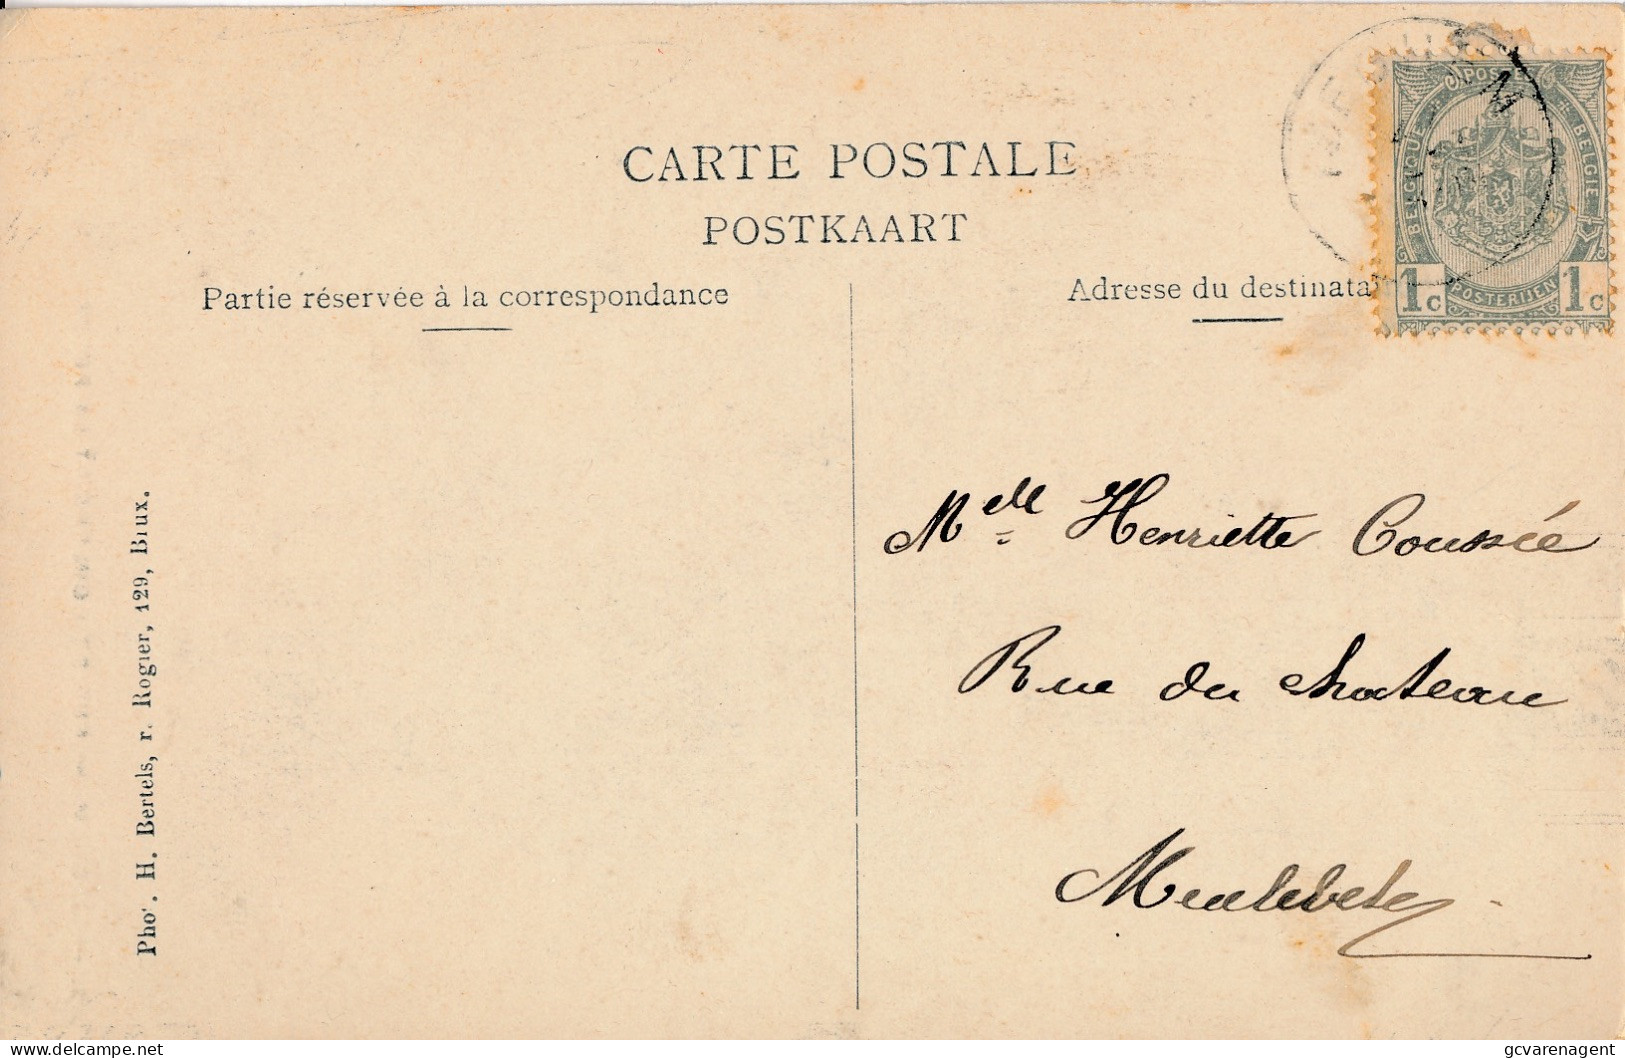 CARTE POSTALE
POSTKAART
Partie réservée à la correspondance
Adresse du destinata
POSTES
BELGIQUE
BELGIE
1c
POSTERIJEN
1c
Melle Henriette Coussée
Rue du château
Meulebeke
Phot. H. Bertels, r. Rogier, 129, Brux.
delcampe.net
gcvarenagent